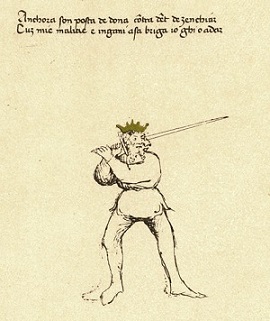 Anchora son posta de dona cōtra dēt de zenchiar
Cuz mie malicie e ingani asa briga io ghi o a dar